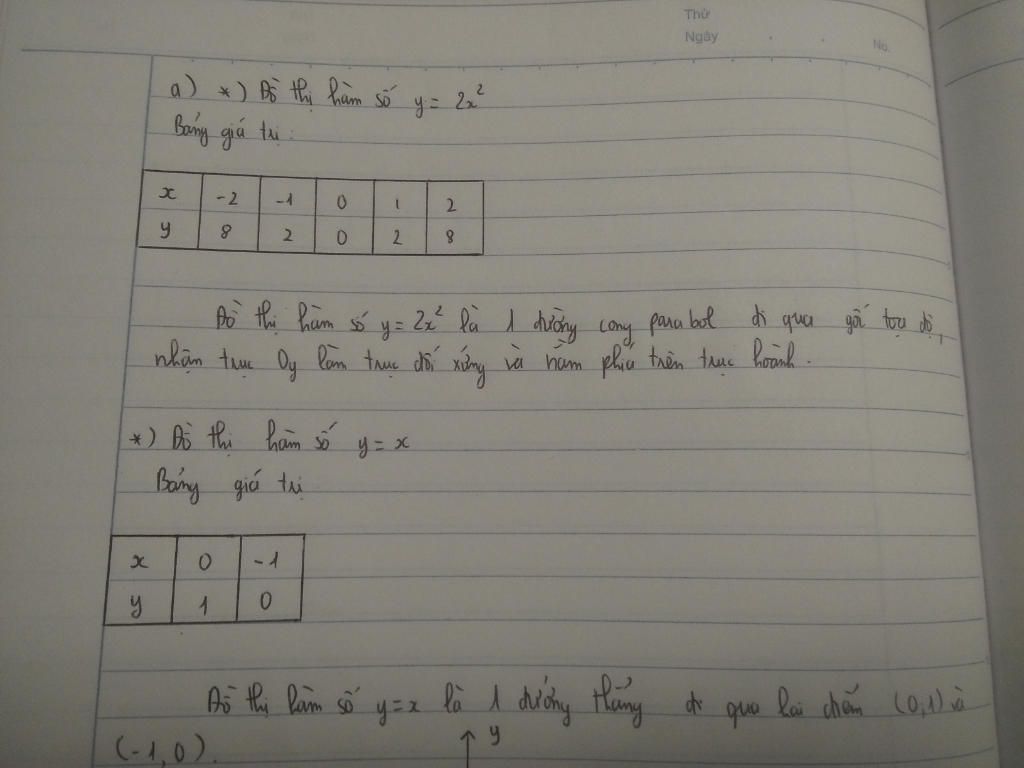 Thứ
Ngày
No.
a) *) Đồ thị hàm số y = 2x²
Bảng giá trị:
x -2 -1 0 1 2
y 8 2 0 2 8
Đồ thị hàm số y = 2x² là 1 đường cong parabol đi qua gốc tọa độ,
nhận trục Oy làm trục đối xứng và nằm phía trên trục hoành.
*) Đồ thị hàm số y = x
Bảng giá trị
x 0 -1
y 1 0
Đồ thị hàm số y = x là 1 đường thẳng đi qua hai điểm (0,1) và
(-1,0).
y